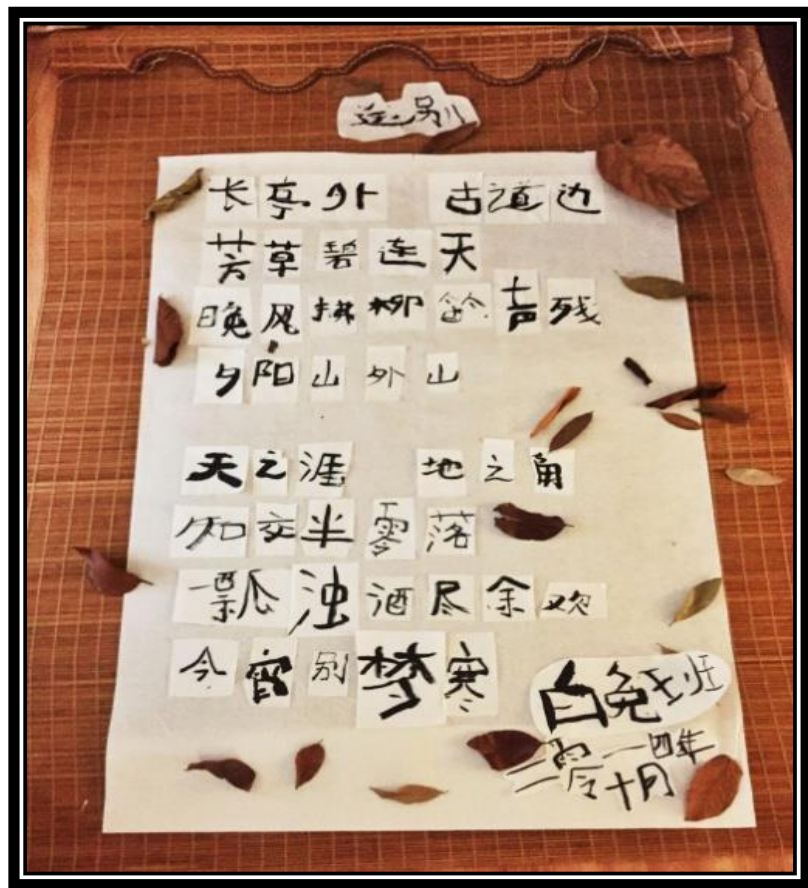 送别
长亭外 古道边
芳草碧连天
晚风拂柳笛声残
夕阳山外山
天之涯 地之角
知交半零落
一瓢浊酒尽余欢
今宵别梦寒
白兔班
二零一四年
十月